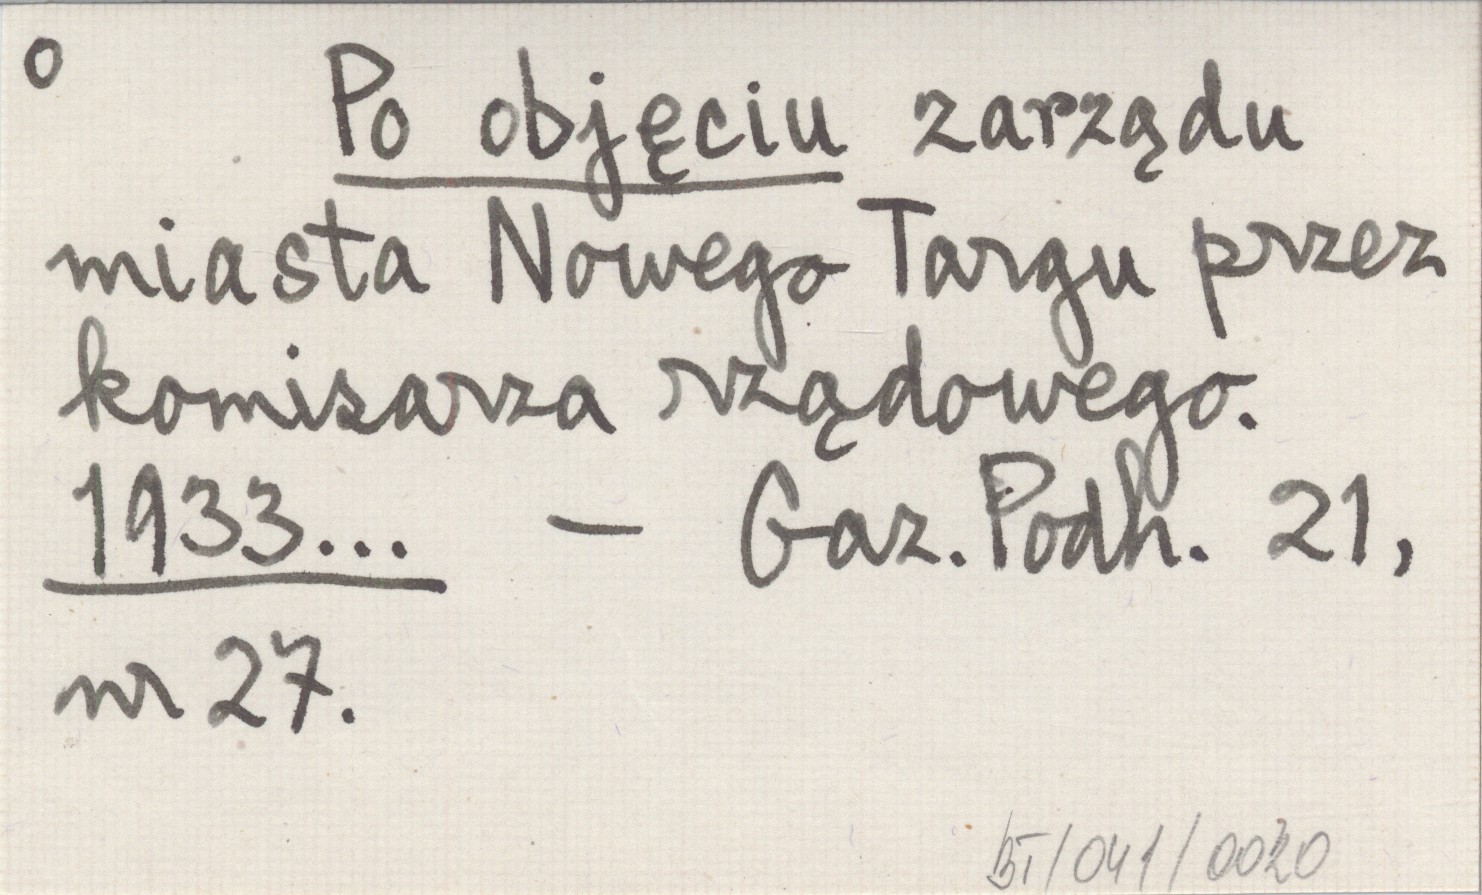 o Po objęciu zarządu
miasta Nowego Targu przez
komisarza rządowego.
1933... – Gaz. Podh. 21,
nr 27.
BT/041/0020